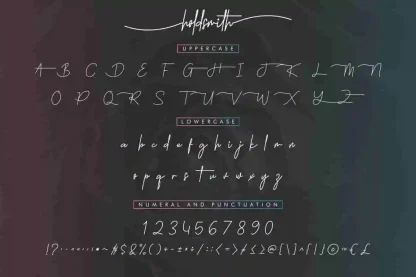 holdsmith
UPPERCASE
A B C D E F G H I J K L M N
O P Q R S T U V W X Y Z
LOWERCASE
a b c d e f g h i j k l m n
o p q r s t u v w x y z
NUMERAL AND PUNCTUATION
1 2 3 4 5 6 7 8 9 0